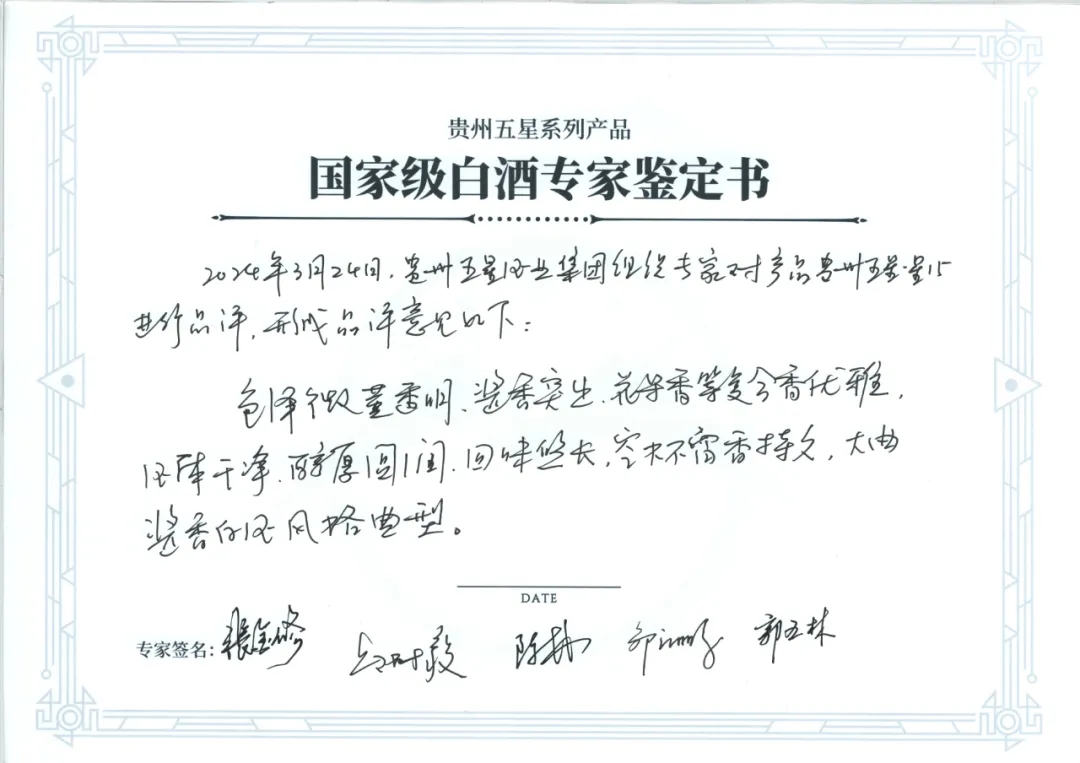 贵州五星系列产品
国家级白酒专家鉴定书
2024年3月24日，贵州五星酒业集团组织专家对产品贵州五星·星15
进行品评，形成品评意见如下：
色泽微黄透明、酱香突出、花果香等复合香优雅，
酒体干净、醇厚圆润、回味悠长，空杯留香持久，大曲
酱香白酒风格典型。
DATE
专家签名： 陈 郭五林